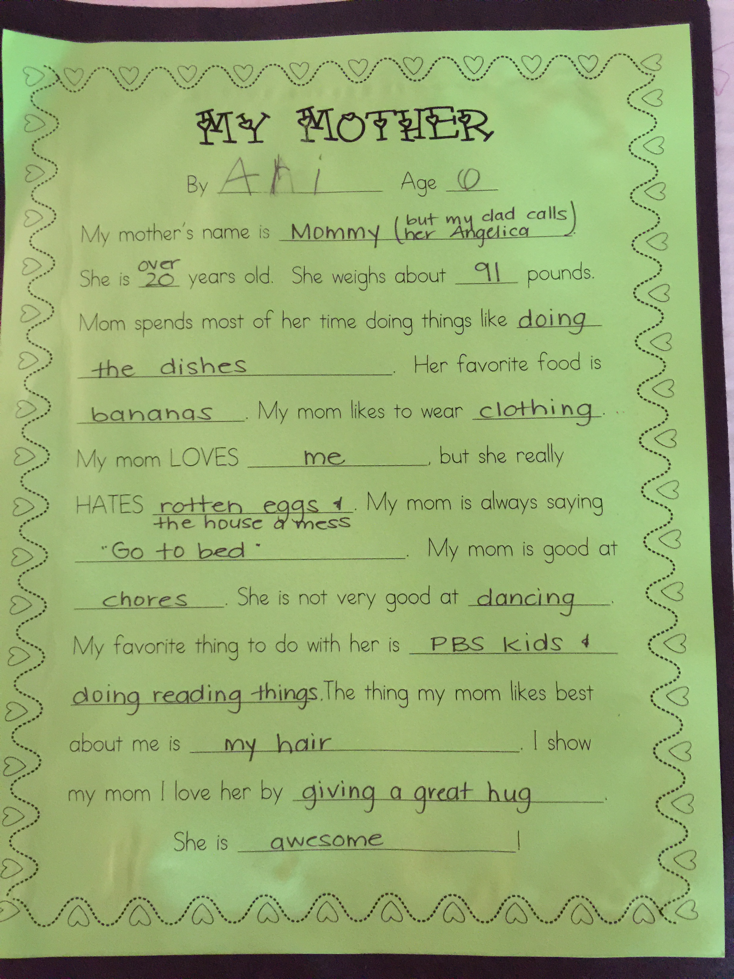 MY MOTHER
By Ari Age 6
but my dad calls
My mother's name is Mommy (her Angelica).
over
She is 20 years old. She weighs about 91 pounds.
Mom spends most of her time doing things like doing
the dishes. Her favorite food is
bananas. My mom likes to wear clothing.
My mom LOVES me, but she really
HATES rotten eggs &. My mom is always saying
the house a mess
"Go to bed". My mom is good at
chores. She is not very good at dancing.
My favorite thing to do with her is PBS kids &
doing reading things. The thing my mom likes best
about me is my hair. I show
my mom I love her by giving a great hug.
She is awesome!